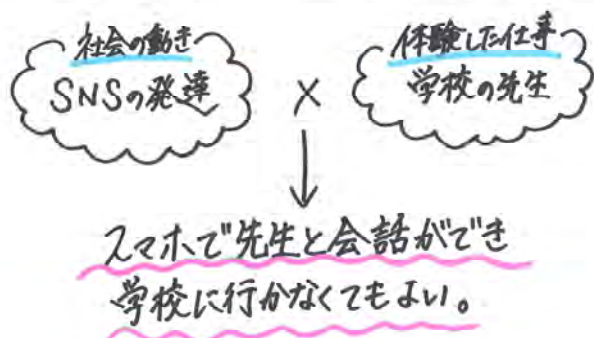 社会の動き
SNSの発達
×
体験した仕事
学校の先生
スマホで先生と会話ができ
学校に行かなくてもよい。